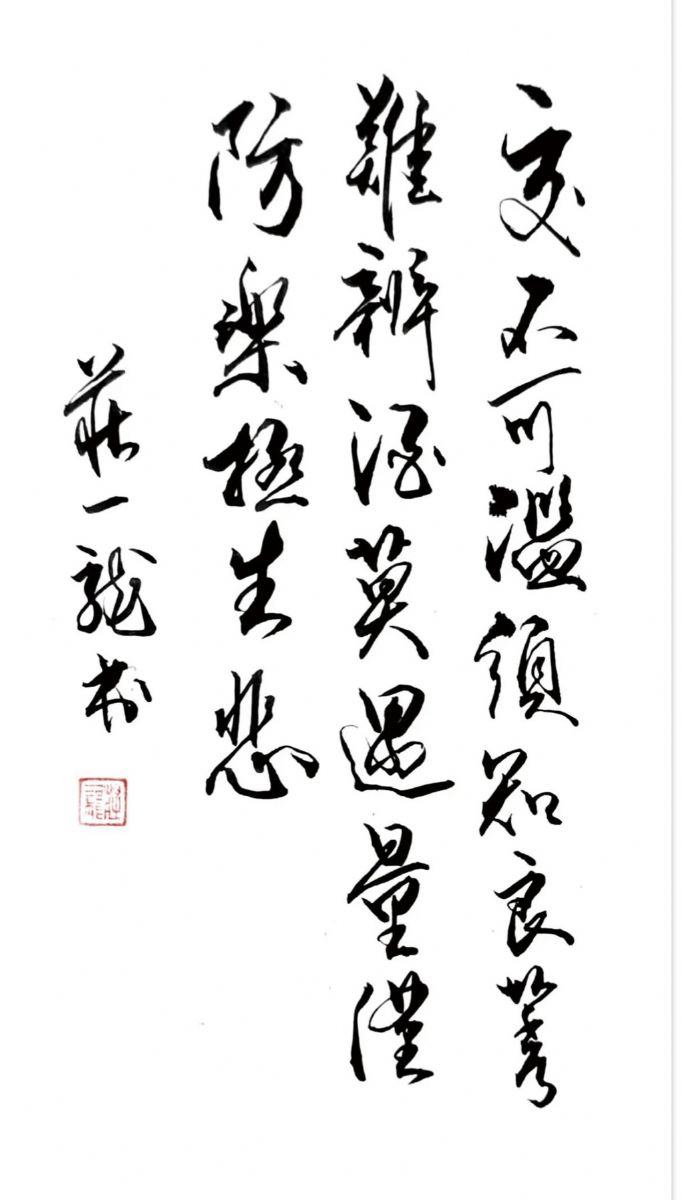 交不可濫須知良莠
難辨酒莫過量謹
防樂極生悲
莊一龍書